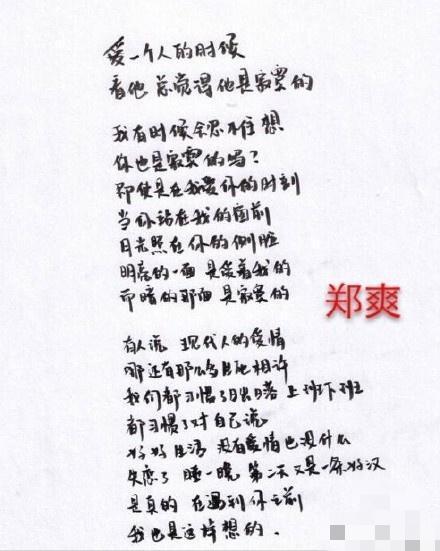 爱一个人的时候
看他总觉得他是寂寞的
我有时候会忍不住想
你也是寂寞的吗？
即使是在我爱你的时刻
当你站在我的窗前
月光照在你的侧脸
明亮的一面是依着我的
而暗的那面是寂寞的
郑爽
有人说 现代人的爱情
哪还有那么多生死相许
我们都习惯了日出日落 上班下班
都习惯了对自己说
好好生活 没有爱情也没什么
失恋了 睡一晚 第二天又是一条好汉
是真的 在遇到你之前
我也是这样想的.